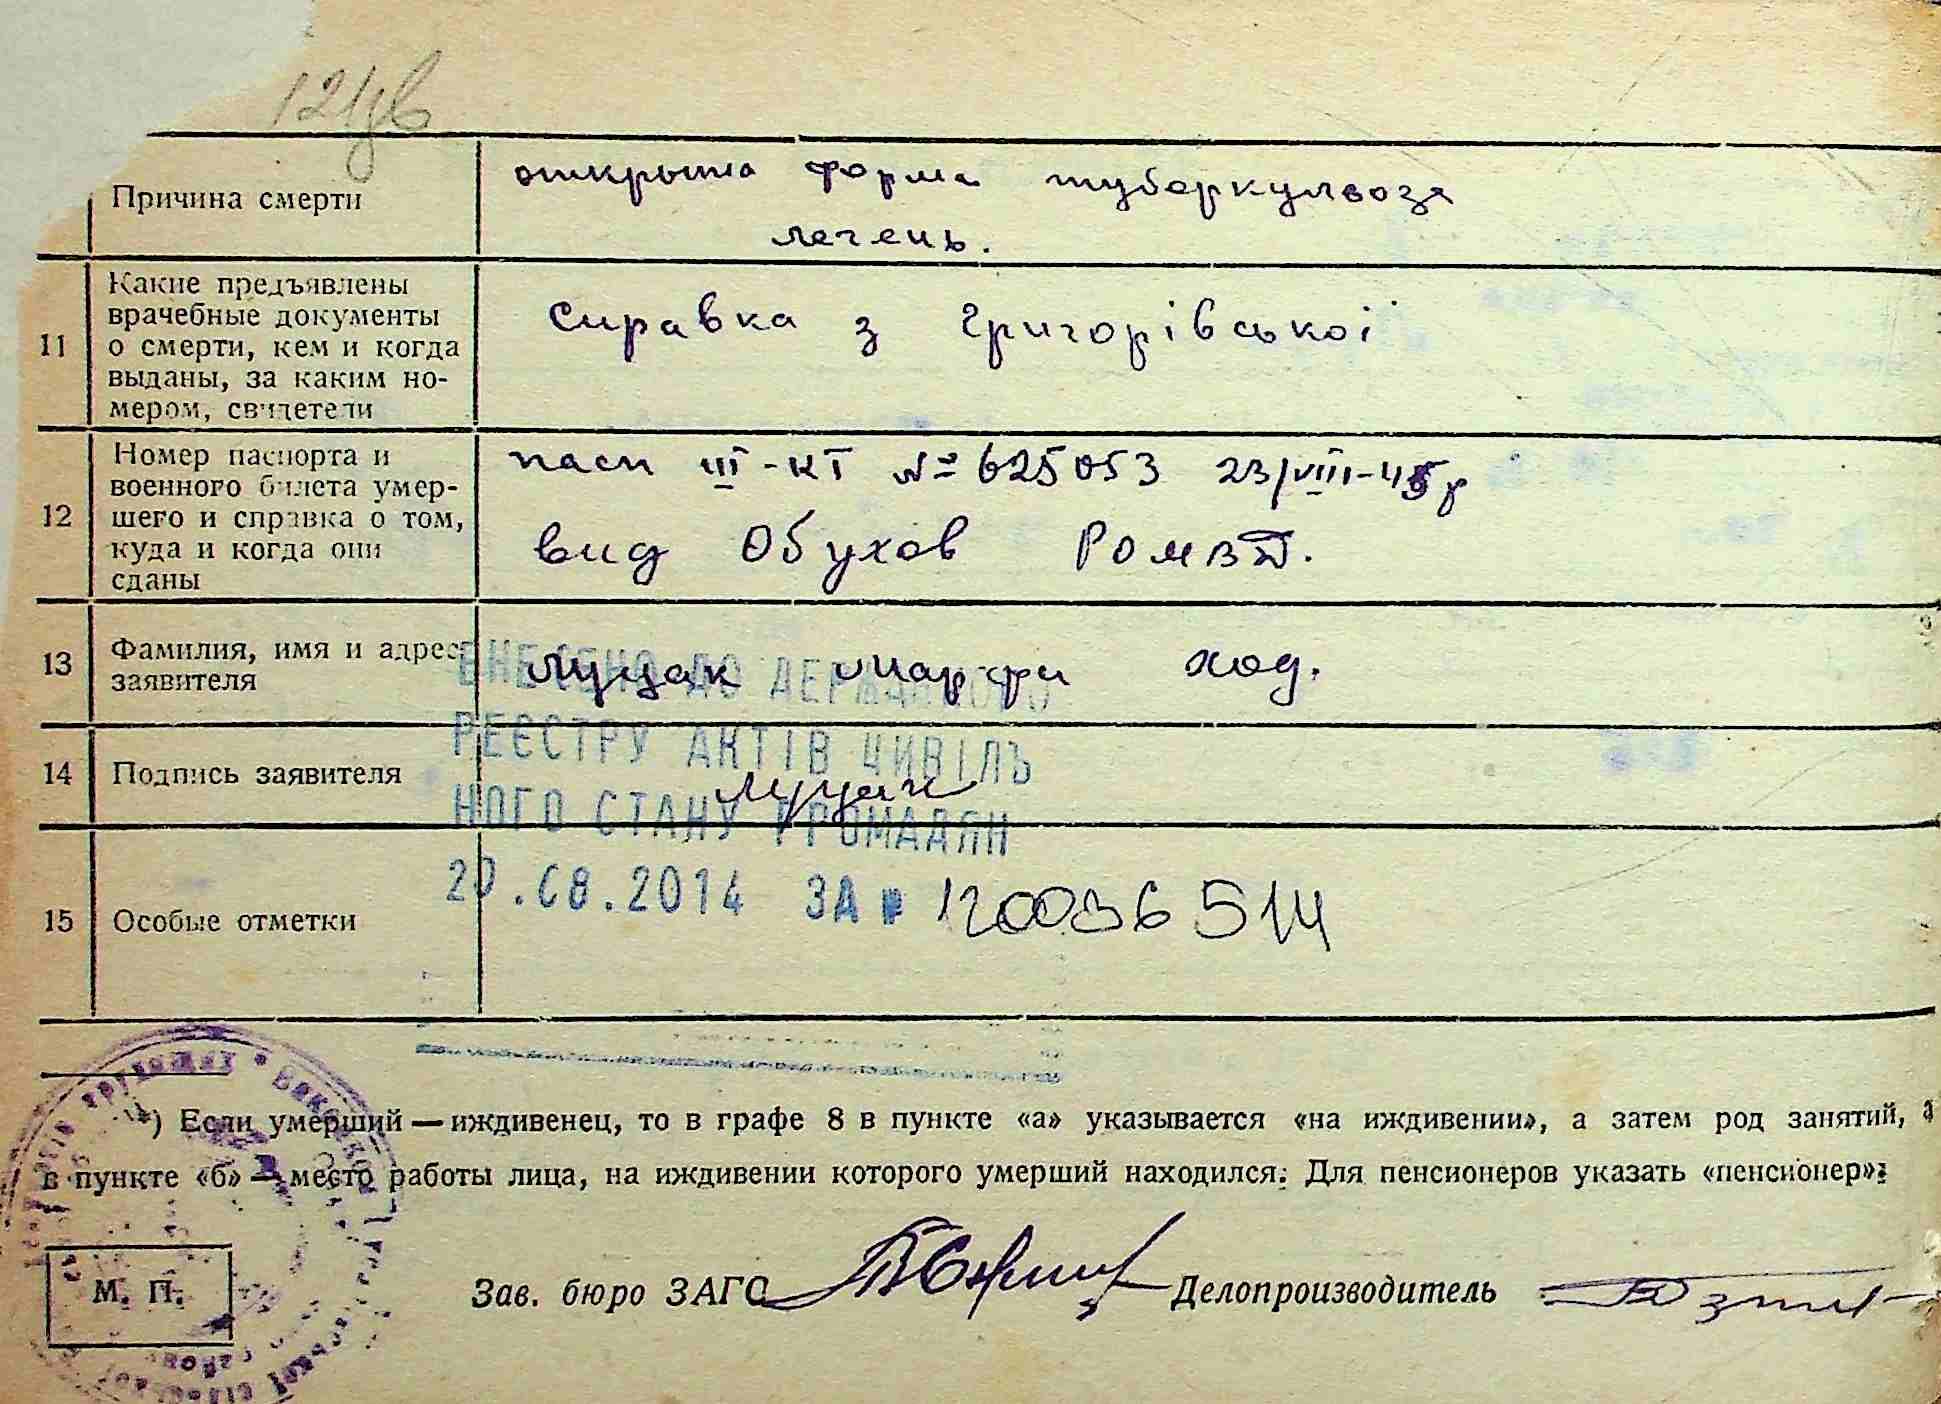 Причина смерти
открыта форма туберкульоза
легень.
11
Какие предъявлены
врачебные документы
о смерти, кем и когда
выданы, за каким но-
мером, свидетели
Справка з Григорівської
12
Номер паспорта и
военного билета умер-
шего и справка о том,
куда и когда они
сданы
пасп III-КТ № 625053 23/VIII-45 р
вид Обухов РОМВД.
13
Фамилия, имя и адрес
заявителя
Луцак Марфи ход.
ВНЕСЕНО ДО ДЕРЖАВНОГО
РЕЄСТРУ АКТІВ ЦИВІЛЬ
НОГО СТАНУ ГРОМАДЯН
20.08.2014 ЗА № 120036514
14
Подпись заявителя
Луцак
15
Особые отметки
*) Если умерший — иждивенец, то в графе 8 в пункте «а» указывается «на иждивении», а затем род занятий, а
в пункте «б» — место работы лица, на иждивении которого умерший находился. Для пенсионеров указать «пенсионер».
М. П.
Зав. бюро ЗАГС
Делопроизводитель